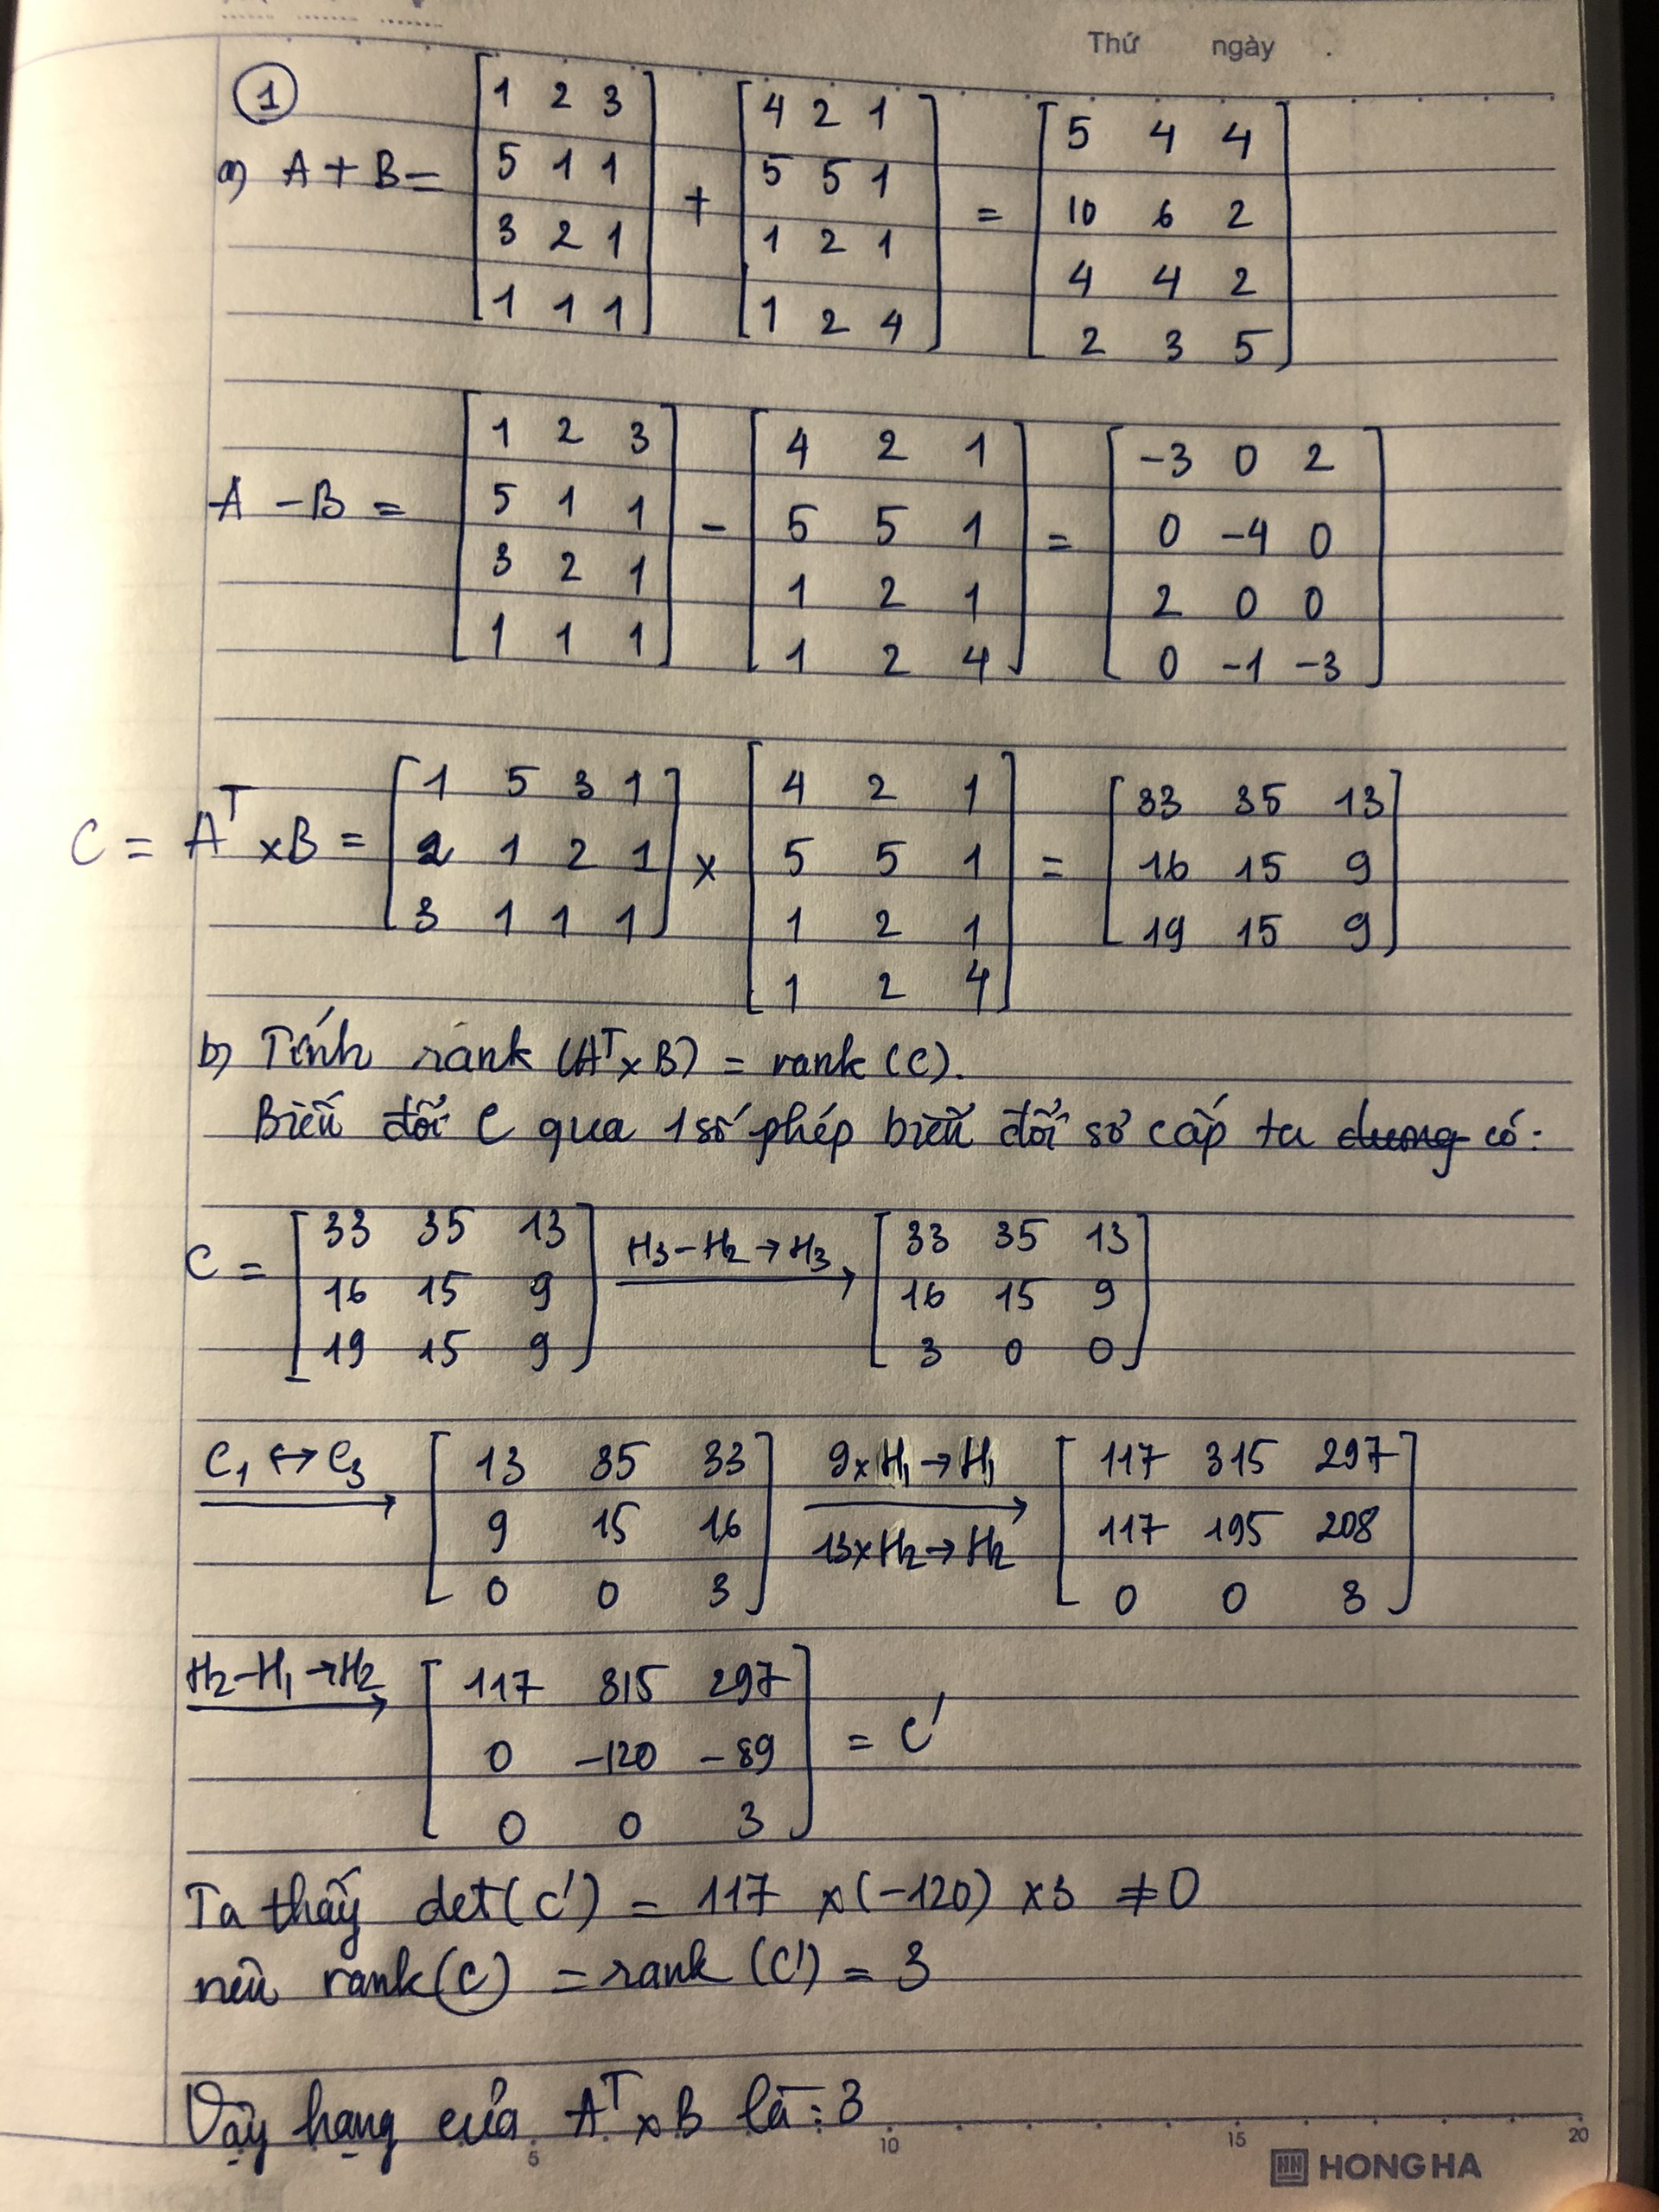 Thứ ngày .
①
a) A + B = [1 2 3; 5 1 1; 3 2 1; 1 1 1] + [4 2 1; 5 5 1; 1 2 1; 1 2 4] = [5 4 4; 10 6 2; 4 4 2; 2 3 5]
A - B = [1 2 3; 5 1 1; 3 2 1; 1 1 1] - [4 2 1; 5 5 1; 1 2 1; 1 2 4] = [-3 0 2; 0 -4 0; 2 0 0; 0 -1 -3]
C = Aᵀ × B = [1 5 3 1; 2 1 2 1; 3 1 1 1] × [4 2 1; 5 5 1; 1 2 1; 1 2 4] = [33 35 13; 16 15 9; 19 15 9]
b) Tính rank (Aᵀ × B) = rank (C).
Biến đổi C qua 1 số phép biến đổi sơ cấp ta dung có:
C = [33 35 13; 16 15 9; 19 15 9] H₃ - H₂ → H₃ [33 35 13; 16 15 9; 3 0 0]
C₁ ↔ C₃ [13 35 33; 9 15 16; 0 0 3] 9 × H₁ → H₁ 13 × H₂ → H₂ [117 315 297; 117 195 208; 0 0 3]
H₂ - H₁ → H₂ [117 315 297; 0 -120 -89; 0 0 3] = C'
Ta thấy det(C') = 117 × (-120) × 3 ≠ 0
nên rank(C) = rank (C') = 3
Vậy hạng của Aᵀ × B là: 3
5 10 15 20
HONG HA